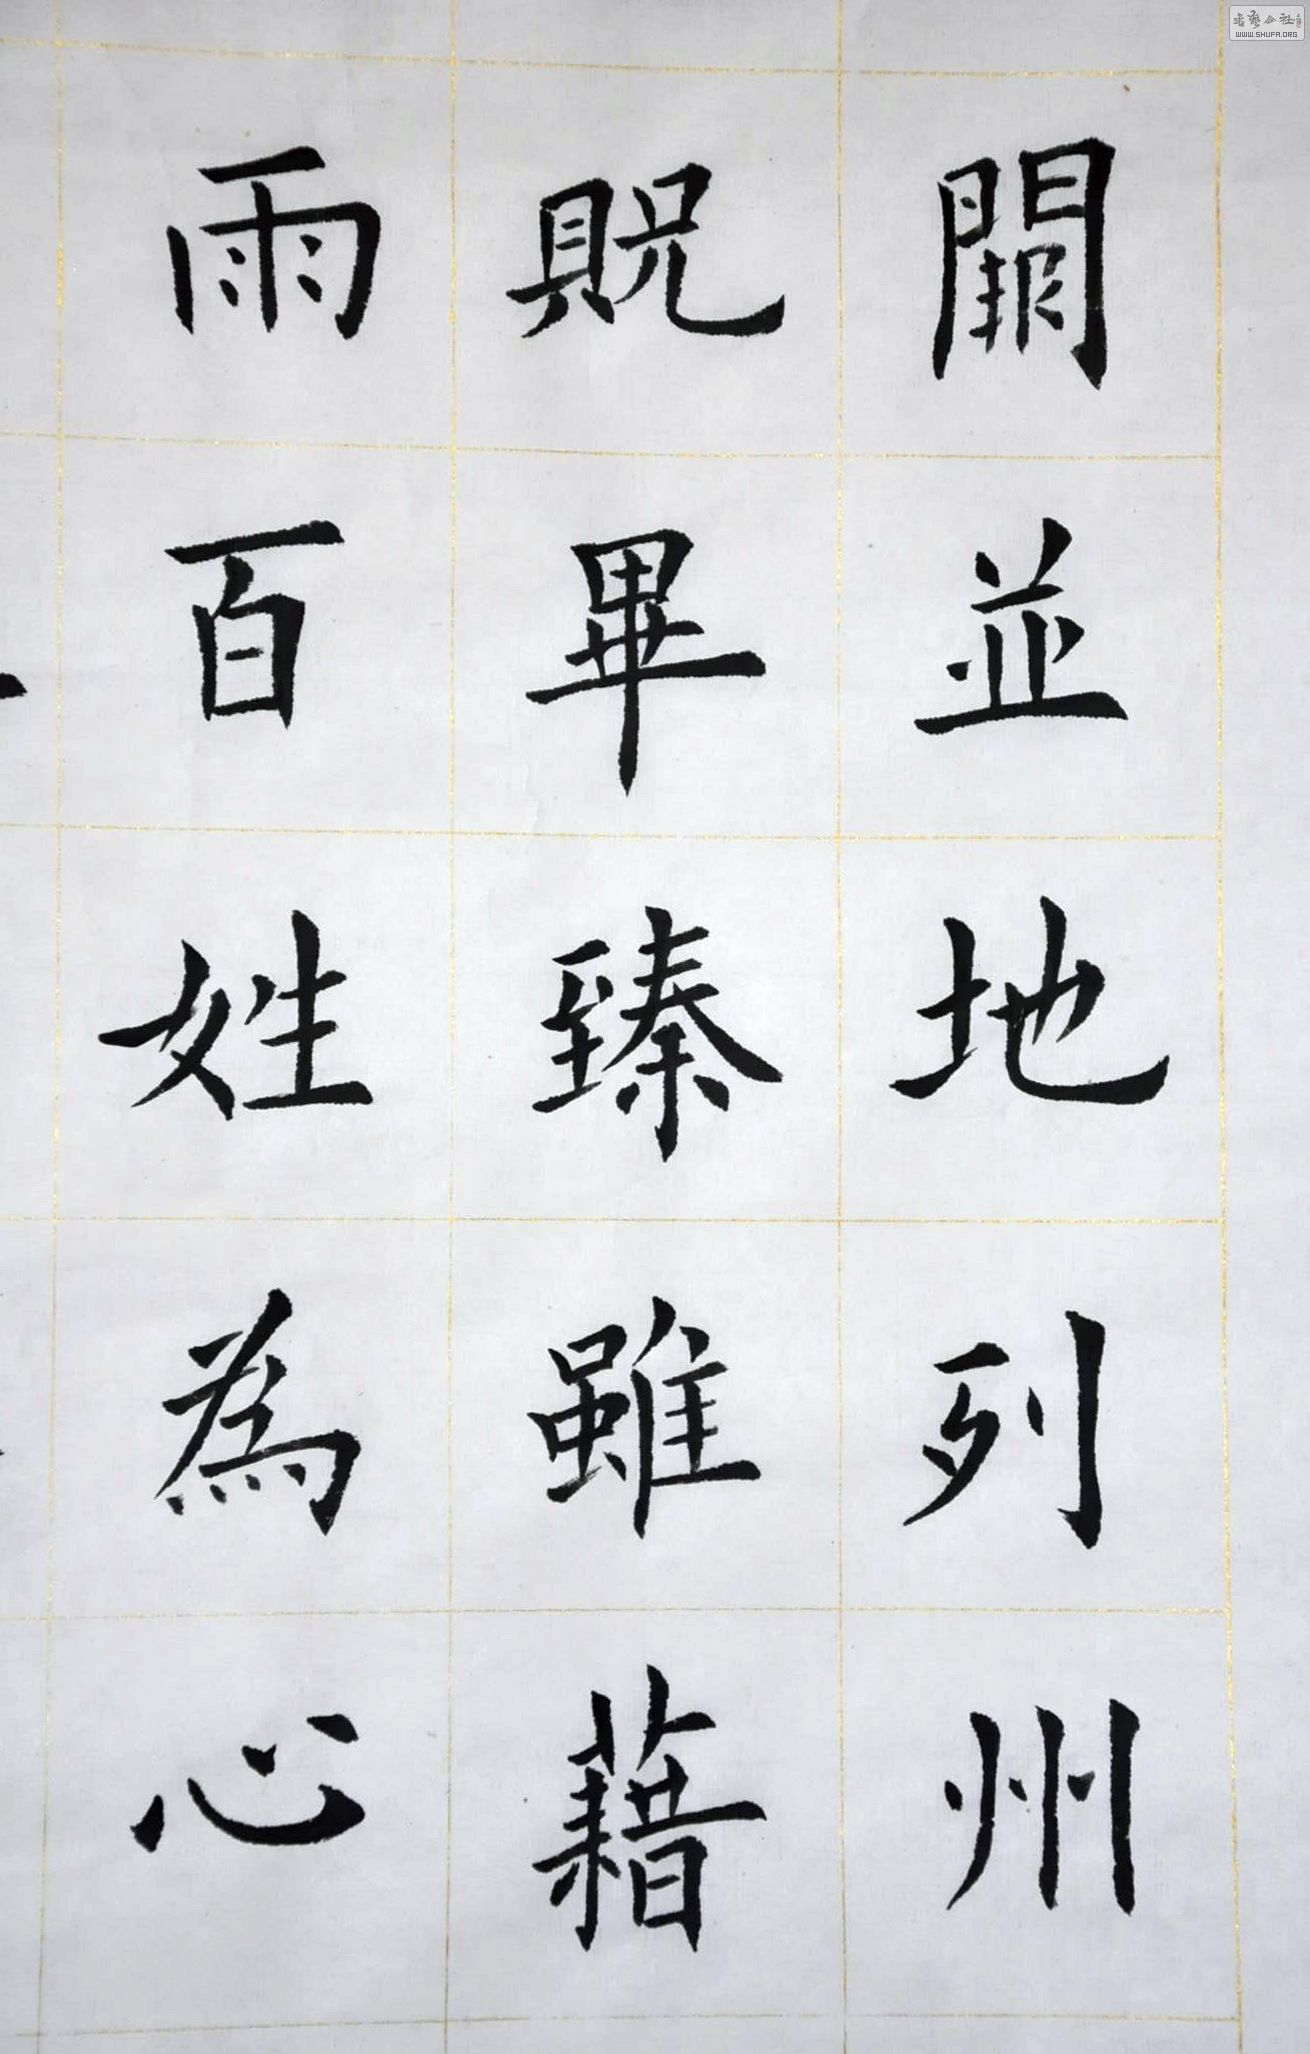 闕並地列州
貺畢臻雖藉
雨百姓為心
書藝公社
WWW.SHUFA.ORG